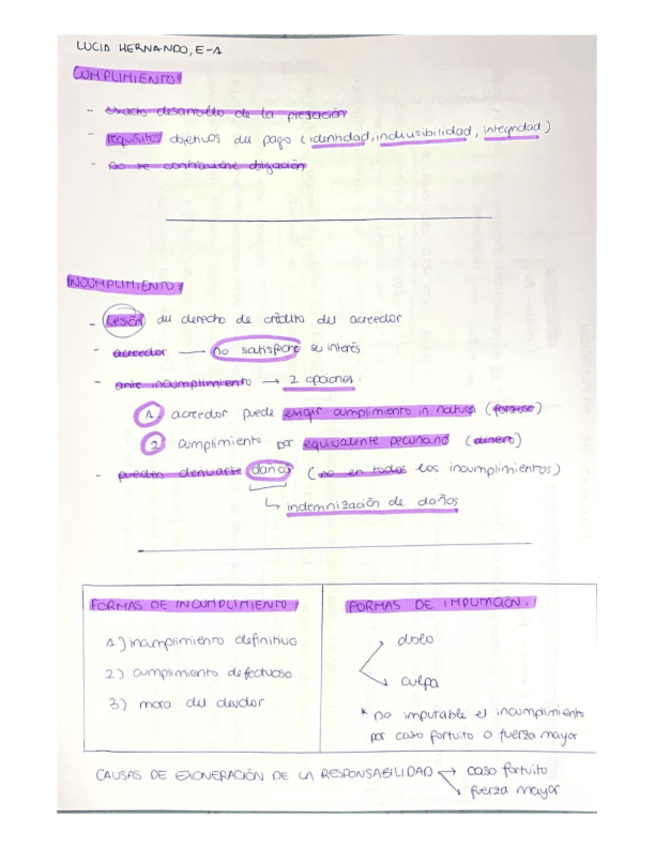 LUCIA HERNANDO, E-1
CUMPLIMIENTO
- exacto desarrollo de la prestación
- requisitos objetivos del pago (identidad, indivisibilidad, integridad)
- no se contraviene obligación
INCUMPLIMIENTO
- Lesión del derecho de crédito del acreedor
- acreedor → no satisface su interés
- ante incumplimiento → 2 opciones:
1. acreedor puede exigir cumplimiento in natura (forzoso)
2. cumplimiento por equivalente pecuniario (dinero)
- pueden derivarse daños (no en todos los incumplimientos)
↳ indemnización de daños
FORMAS DE INCUMPLIMIENTO:
1) incumplimiento definitivo
2) cumplimiento defectuoso
3) mora del deudor
FORMAS DE IMPUTACIÓN:
dolo
culpa
* no imputable el incumplimiento
por caso fortuito o fuerza mayor
CAUSAS DE EXONERACIÓN DE LA RESPONSABILIDAD → caso fortuito
↘ fuerza mayor